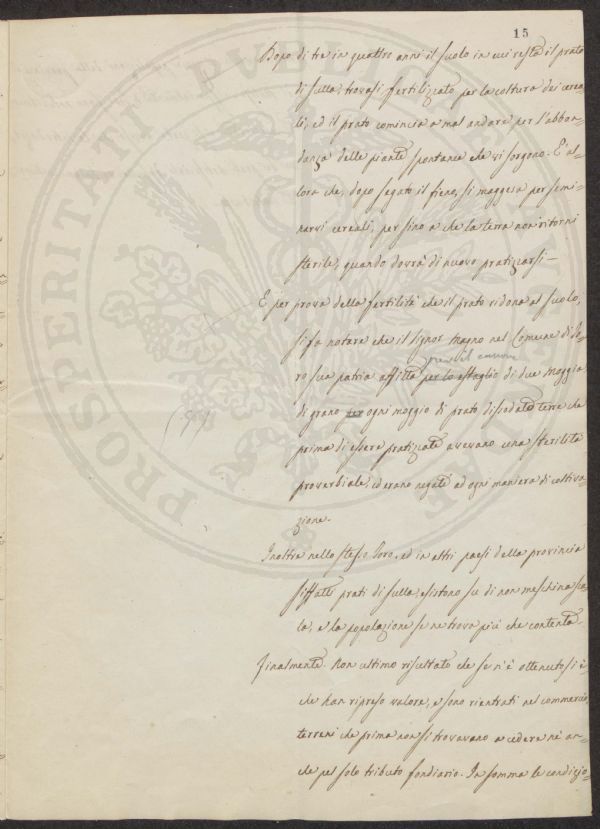 15
Dopo di tre in quattro anni il suolo in cui resta il prato
di sulla, trovasi fertilizzato per la coltura dei cerea-
li, ed il prato comincia a mal andare per l'abbon-
danza delle piante spontanee che vi sorgono. E' al-
lora che, dopo segato il fieno, si maggesa per semi-
narvi cereali, per sino a che la terra non ritorni
sterile, quando dovrà di nuovo pratizzarsi-
E per prova della fertilità che il prato ridona al suolo,
si fa notare che il Signor Magno nel Comune di Lo-
ro sua patria affitta per lo estaglio di due moggia
di grano per ogni moggio di prato dissodato terre che
prima di essere pratizzate avevano una sterilità
proverbiale, ed erano negate ad ogni maniera di coltiva-
zione.
Inoltre nello stesso Loro, ed in altri paesi della provincia
siffatti prati di sulla esistono su di non meschina sca-
la, e la popolazione se ne trova più che contenta.
Finalmente. Non ultimo risultato che se n'è ottenuto si è
che han ripreso valore, e sono rientrati nel commercio
terreni che prima non si trovavano a cedere nè an-
che pel solo tributo fondiario. In somma le condizio-
PROSPERITATI PUBLICAE